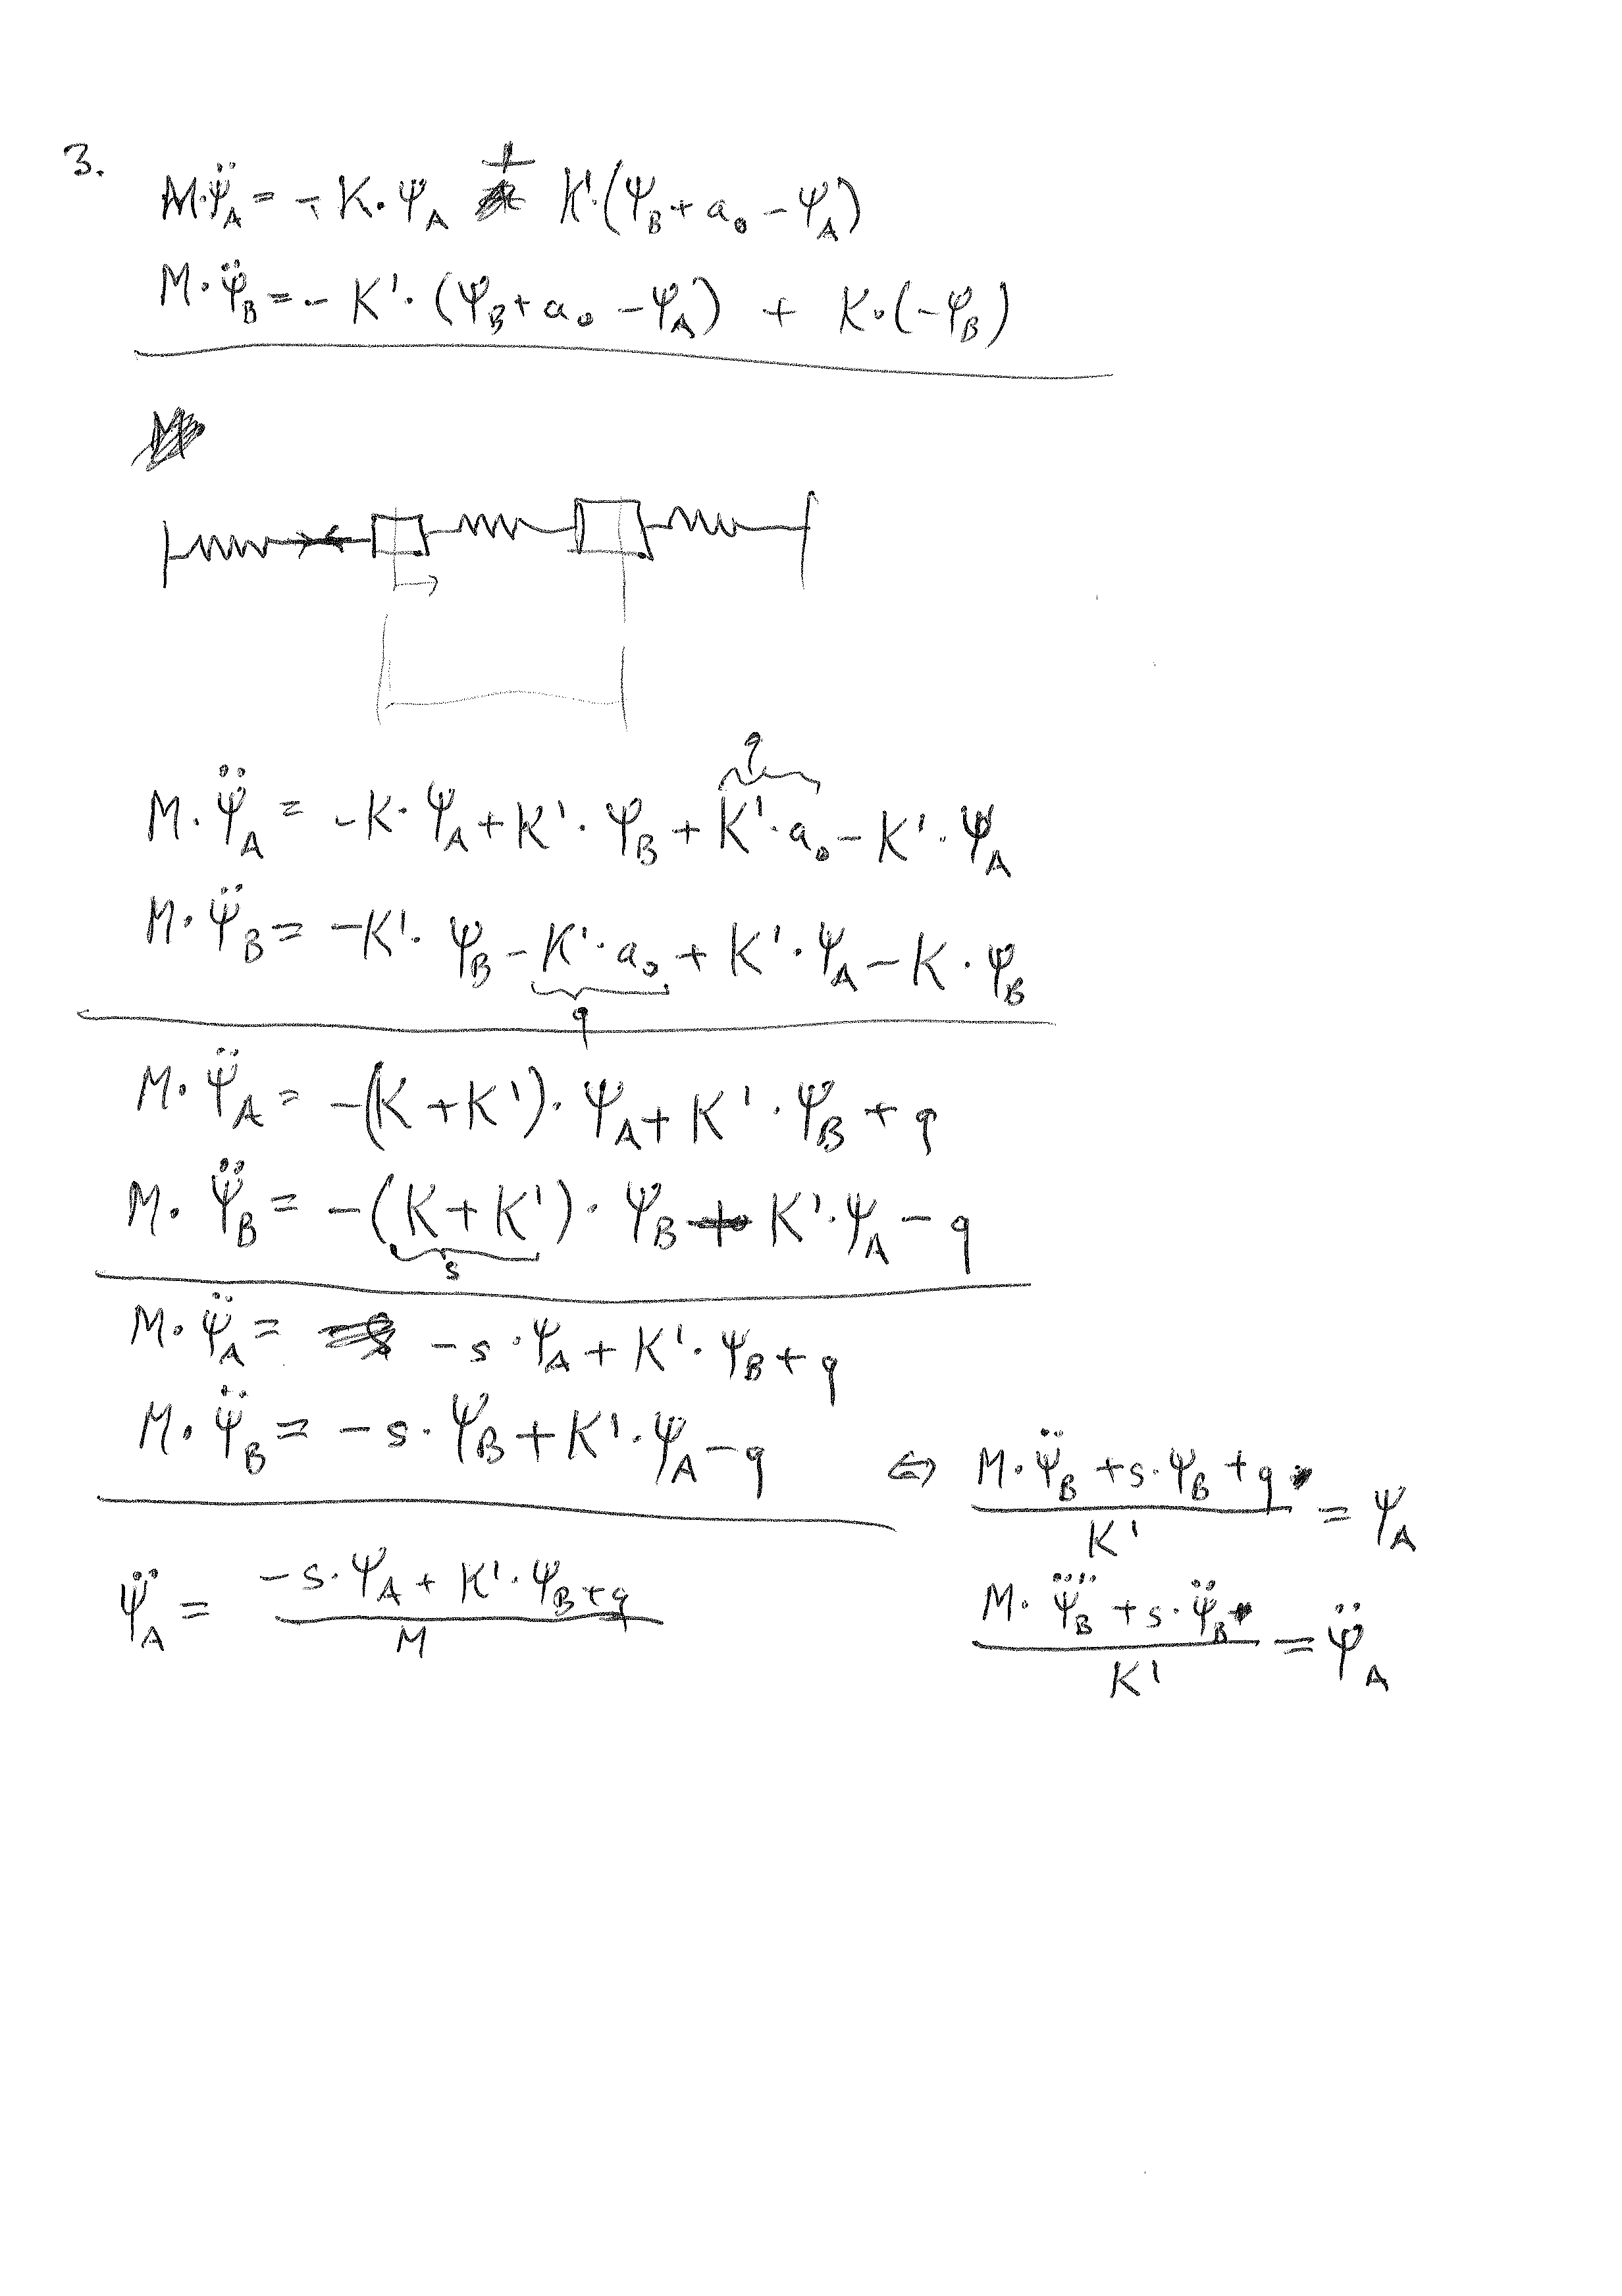 3.
M·ψ̈_A = - K·ψ_A + K'·(ψ_B + a₀ - ψ_A)
M·ψ̈_B = - K'·(ψ_B + a₀ - ψ_A) + K·(-ψ_B)
q
M·ψ̈_A = -K·ψ_A + K'·ψ_B + K'·a₀ - K'·ψ_A
M·ψ̈_B = -K'·ψ_B - K'·a₀ + K'·ψ_A - K·ψ_B
q
M·ψ̈_A = -(K + K')·ψ_A + K'·ψ_B + q
M·ψ̈_B = -(K + K')·ψ_B + K'·ψ_A - q
s
M·ψ̈_A = -s·ψ_A + K'·ψ_B + q
M·ψ̈_B = -s·ψ_B + K'·ψ_A - q ⇔ (M·ψ̈_B + s·ψ_B + q)/K' = ψ_A
ψ̈_A = (-s·ψ_A + K'·ψ_B + q)/M
(M·ψ⃜_B + s·ψ̈_B)/K' = ψ̈_A